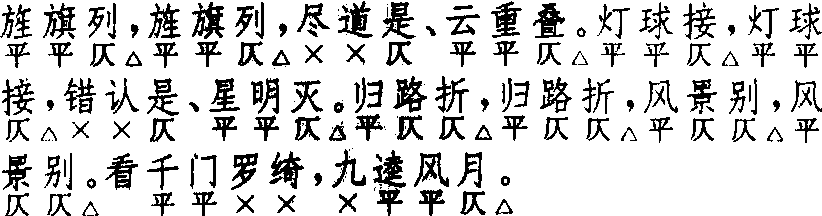 旌旗列，旌旗列，尽道是、云重叠。灯球接，灯球
平平仄△平平仄△××仄 平平仄△平平仄△平平
接，错认是、星明灭。归路折，归路折，风景别，风
仄△××仄 平平仄△平仄仄△平仄仄△平仄仄△平
景别。看千门罗绮，九逵风月。
仄仄△ 平平×× ×平平仄△